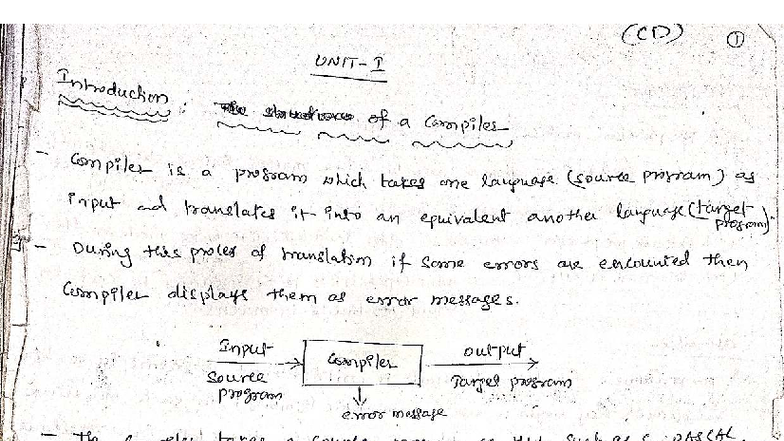 (CD) ①
UNIT-I
Introduction : The structure of a Compiler
- Compiler is a program which takes one language (source program) as
input and translates it into an equivalent another language (target program).
- During this proces of translation if some errors are encounted then
Compiler displays them as error messages.
Input
Source
program
Compiler
output
Target program
error message
- The takes a source such as C, PASCAL,